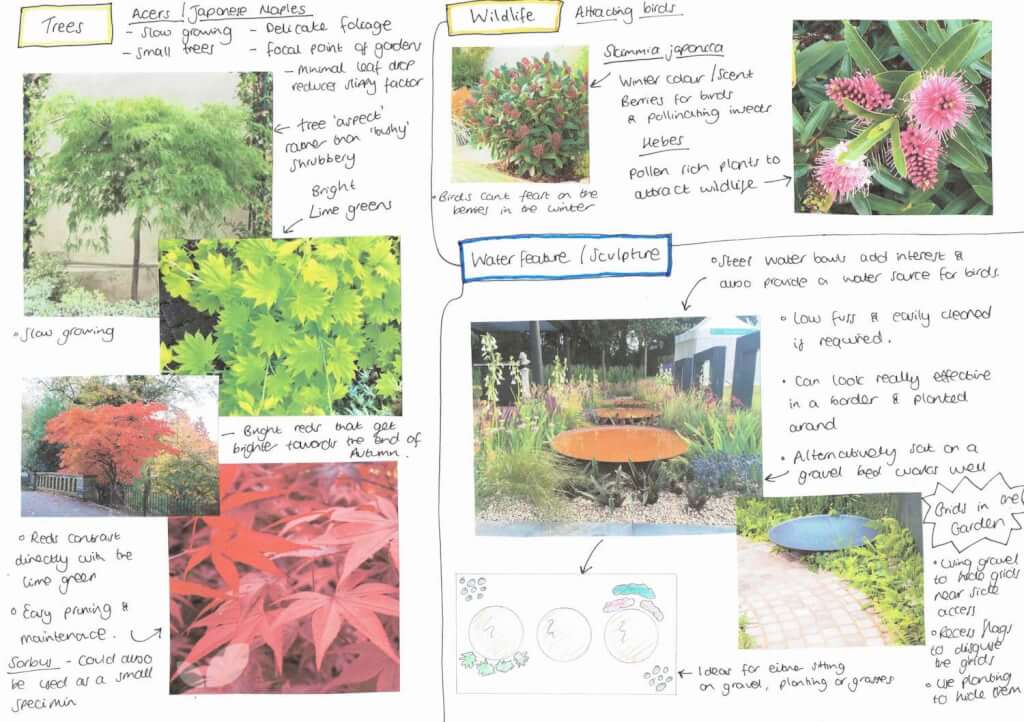 Trees
Acers / Japanese Maples
- Slow growing
- Small trees
- Delicate foleage
- focal point of gardens
- Minimal leaf drop
reduces slippy factor
tree 'aspect'
rather than 'bushy'
shrubbery
Bright
Lime greens
Slow growing
- Bright reds that get
brighter towards the end of
Autumn.
Reds contrast
directly with the
lime green
Easy pruning &
maintenace.
Sorbus - Could also
be used as a small
specimin
Wildlife
Attracting birds
Skimmia japonica
Winter colour / Scent
Berries for birds
& pollinating insects
Hebes
Pollen rich plants to
attract wildlife
Birds can't feast on the
berries in the winter
Water feature / Sculpture
Steel water bowls add interest &
also provide a water source for birds.
Low fuss & easily cleaned
if required.
Can look really effective
in a border & planted
around
Alternatively sat on a
gravel bed works well
Grids in the
Garden
Using gravel
to hide grids
near side
access
Recess flags
to disguise
the grids
Use planting
to hide them
Ideas for either sitting
on gravel, planting or grasses